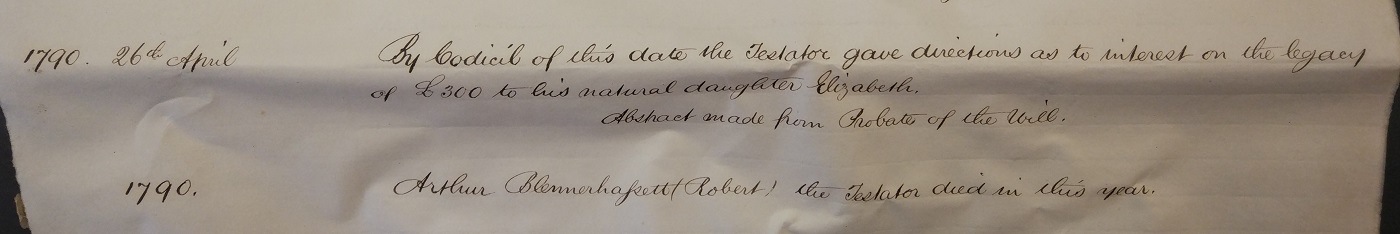 1790. 26th April By Codicil of this date the Testator gave directions as to interest on the legacy
of £300 to his natural daughter Elizabeth.
Abstract made from Probate of the Will.
1790. Arthur Blennerhassett (Robert) the Testator died in this year.